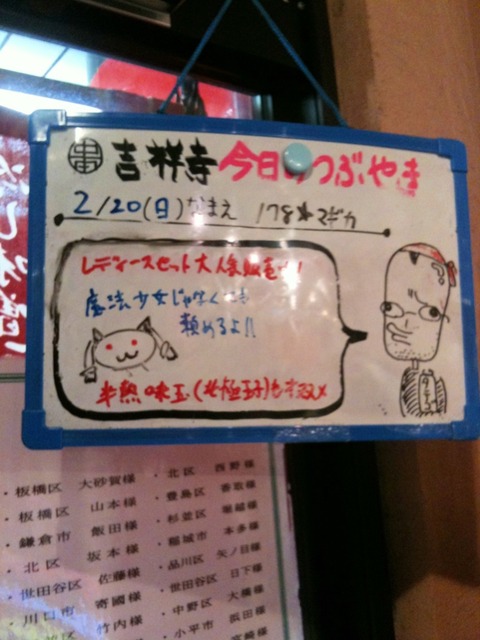 吉祥寺 今日のつぶやき
2/20(日) なまえ 178★マギカ
レディースセット大人気販売中!
魔法少女じゃなくても
頼めるよ!!
半熟味玉(北極玉子)もオススメ
・板橋区 大砂賀様
・板橋区 山本様
・鎌倉市 飯田様
・北区 坂本様
・世田谷区 佐藤様
・川口市 寄國様
竹内様
・北区 西野様
・豊島区 香取様
・杉並区 堀越様
・稲城市 本多様
・品川区 矢ノ目様
・世田谷区 日下様
・中野区 大橋様
・小平市 浜田様
宮崎様